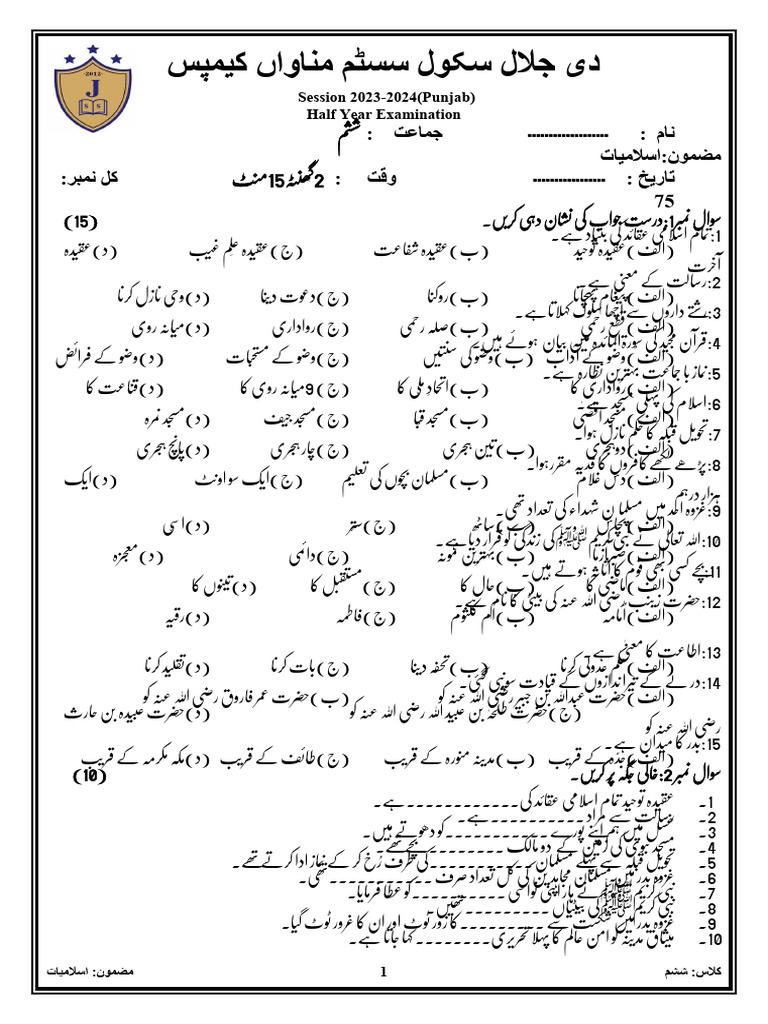 دی جلال سکول سسٹم مناواں کیمپس
2012
J
S S
Session 2023-2024(Punjab)
Half Year Examination
نام : ------------------- جماعت : ششم
مضمون:اسلامیات
تاریخ : ----------------- وقت : 2گھنٹہ15منٹ کل نمبر:
75
سوال نمبر1:درست جواب کی نشان دہی کریں۔ (15)
1:تمام اسلامی عقائد کی بنیاد ہے۔
(الف)عقیدہ توحید (ب)عقیدہ شفاعت (ج)عقیدہ علمِ غیب (د)عقیدہ
آخرت
2:رسالت کے معنی ہے۔
(الف)پیغام پہچانا (ب)روکنا (ج)دعوت دینا (د)وحی نازل کرنا
3:رشتے داروں سے اچھا سلوک کہلاتا ہے۔
(الف)قطع رحمی (ب)صلہ رحمی (ج)رواداری (د)میانہ روی
4:قرآن مجید کی سورۃ المائدہ میں بیان ہوئے ہیں۔
(الف)وضو کے آداب (ب)وضو کی سنتیں (ج)وضو کے مستحبات (د)وضو کے فرائض
5:نماز با جماعت بہترین نظارہ ہے۔
(الف)رواداری کا (ب)اتحاد ملی کا (ج)9میانہ روی کا (د)قناعت کا
6:اسلام کی پہلی مسجد ہے۔
(الف)مسجد اقصیٰ (ب)مسجد قبا (ج)مسجد جیف (د)مسجد نمرہ
7:تحویل قبلہ کا حکم نازل ہوا۔
(الف)دوہجری (ب)تین ہجری (ج)چار ہجری (د)پانچ ہجری
8:پڑھے لکھے کافروں کا فدیہ مقرر ہوا۔
(الف)دس غلام (ب)مسلمان بچوں کی تعلیم (ج)ایک سو اونٹ (د)ایک
ہزار درہم
9:غزوہ احد میں مسلمان شہداء کی تعداد تھی۔
(الف)پچاس (ب)ساٹھ (ج)ستر (د)اسی
10:اللہ تعالٰی نے نبی کریم ﷺ کی زندگی کو قرار دیا ہے۔
(الف)صبرآزما (ب)بہترین نمونہ (ج)دائمی (د)معجزہ
11:بچے کسی بھی قوم کا اثاثہ ہوتے ہیں۔
(الف)ماضی کا (ب)حال کا (ج)مستقبل کا (د)تینوں کا
12:حضرت زینب رضی اللہ عنہ کی بیٹی کا نام ہے۔
(الف)امامہ (ب)ام کلثوم (ج)فاطمہ (د)رقیہ
13:اطاعت کا معنی ہے۔
(الف)حکم عدولی کرنا (ب)تحفہ دینا (ج)بات کرنا (د)تقلید کرنا
14:درے کے تیر اندازوں کے قیادت سونپی گئی۔
(الف)حضرت عبداللہ بن جبیر رضی اللہ عنہ کو (ب)حضرت عمر فاروق رضی اللہ عنہ کو
(ج)حضرت طلحہ بن عبید اللہ رضی اللہ عنہ کو (د)حضرت عبیدہ بن حارث
رضی اللہ عنہ کو
15:بدر کا میدان ہے۔
(الف)جدہ کے قریب (ب)مدینہ منورہ کے قریب (ج)طائف کے قریب (د)مکہ مکرمہ کے قریب
سوال نمبر2:خالی جگہ پر کریں۔ (10)
1- عقیدہ توحید تمام اسلامی عقائد کی۔۔۔۔۔۔۔۔۔۔۔ہے۔
2- رسالت سے مراد ۔۔۔۔۔۔۔۔۔۔۔ہے۔
3- غسل میں ہم اپنے پورے ۔۔۔۔۔۔۔۔۔۔کو دھوتے ہیں۔
4- مسجد نبوی کی زمین کے دو مالک ۔۔۔۔۔۔۔۔بچے تھے۔
5- تحویل قبلہ سے پہلے مسلمان ۔۔۔۔۔۔۔۔۔کی طرف رخ کر کے نماز ادا کرتے تھے۔
6- غزوہ بدر میں مسلمان مجاہدین کی کل تعداد صرف ۔۔۔۔۔۔۔۔۔تھی۔
7- نبی کریمﷺ نے ہار اپنی نواسی ۔۔۔۔۔۔۔۔۔کو عطا فرمایا۔
8- نبی کریمﷺ کی بیٹیاں ۔۔۔۔۔۔۔۔۔تھیں۔
9- غزوہ بدر میں شکست سے ۔۔۔۔۔۔۔۔کا زور ٹوٹ اور ان کا غرور ٹوٹ گیا۔
10- میثاق مدینہ کو امن عالم کا پہلا تحریری۔۔۔۔۔۔۔۔کہا جاتا ہے۔
کلاس: ششم 1 مضمون: اسلامیات